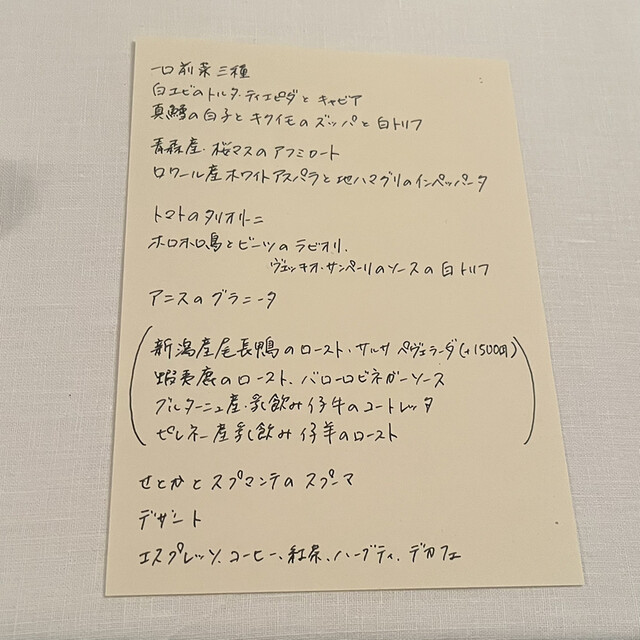 一口前菜三種
白エビのトルタ・ティエピダとキャビア
真鱈の白子とキクイモのズッパと白トリフ
青森産・桜マスのアフミカート
ロワール産ホワイトアスパラと地ハマグリのインペッパータ
トマトのタリオリーニ
ホロホロ鳥とビーツのラビオリ.
ヴェッキオ・サンペーリのソースの白トリフ
アニスのグラニータ
新潟産尾長鴨のロースト・サルサ ペヴェラーダ(+1500円)
蝦夷鹿のロースト、バローロビネガーソース
ブルターニュ産・乳飲み仔牛のコートレッタ
ピレネー産乳飲み仔羊のロースト
せとかとスプマンテのスプーマ
デザート
エスプレッソ、コーヒー、紅茶、ハーブティ、デカフェ